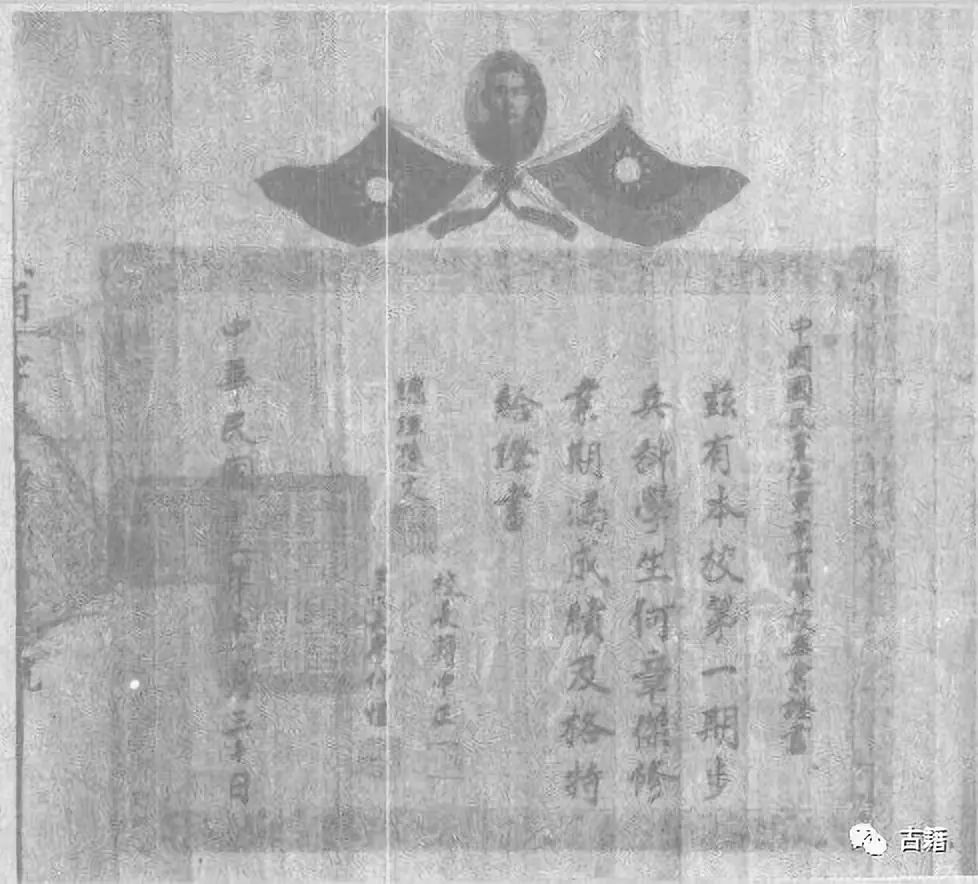 中國國民黨陸軍軍官學校畢業證書
茲有本校第一期步
兵科學生何章傑修
業期滿成績及格特
給證書
總理孫文
校長蔣中正
中華民國 年 月三十日
古籍